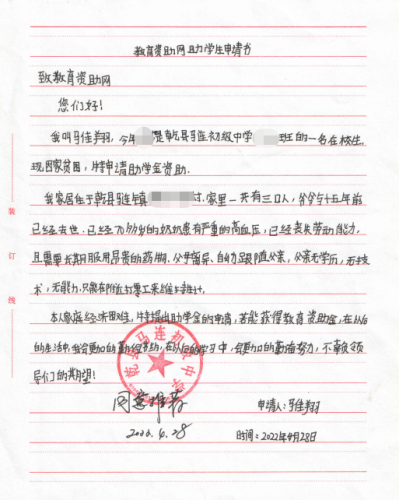 教育资助网助学生申请书
致教育资助网
您们好！
我叫马佳翔，今年 是乾县马连初级中学 班的一名在校生
现因家贫困，特申请助学金资助.
我家居住于乾县马连镇 村.家里一共有三口人，爷爷与十五年前
已经去世.已经70多岁的奶奶患有严重的高血压，已经丧失劳动能力，
且需要长期服用昂贵的药物.父母离异、自幼跟随父亲，父亲无学历，无技
术，无能力.只能在附近打零工来维持生计.
本人家庭经济困难，特提出助学金的申请，若能获得教育资助金，在以后
的生活中我会更加的勤俭节约，在以后的学习中，会更加的勤奋努力，不辜负领
导们的期望！
乾县马连初级中学
同意推荐
申请人：马佳翔
2022.4.28
时间：2022年4月28日
装
订
线